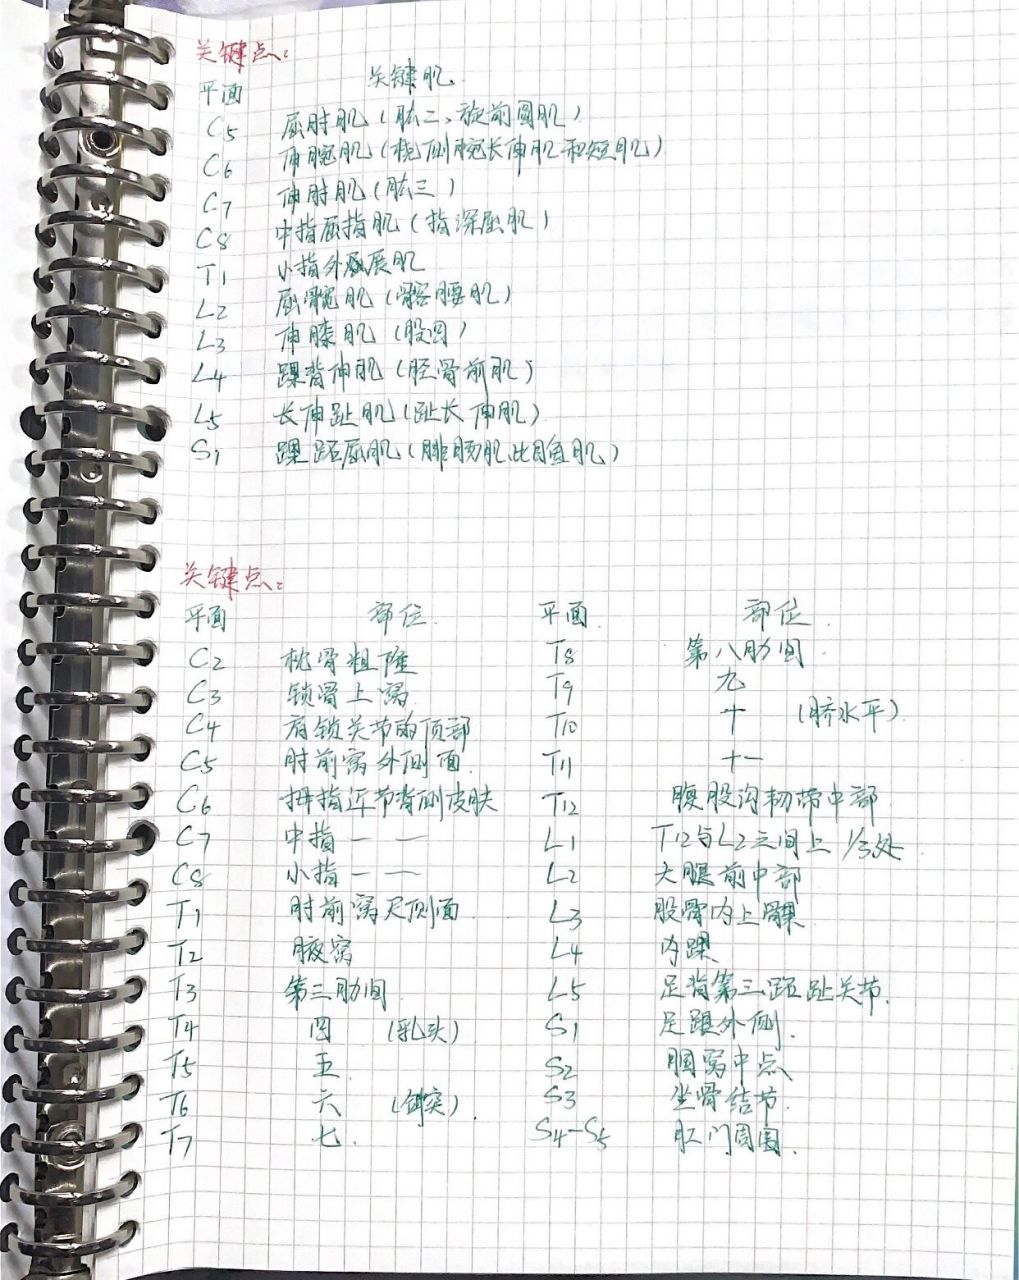 关键点:
平面 关键肌
C5 屈肘肌(肱二、旋前圆肌)
C6 伸腕肌(桡侧腕长伸肌和短肌)
C7 伸肘肌(肱三)
C8 中指屈指肌(指深屈肌)
T1 小指外展肌
L2 屈髋肌(髂腰肌)
L3 伸膝肌(股四)
L4 踝背伸肌(胫骨前肌)
L5 长伸趾肌(趾长伸肌)
S1 踝跖屈肌(腓肠肌、比目鱼肌)
关键点:
平面 部位 平面 部位
C2 枕骨粗隆 T8 第八肋间
C3 锁骨上窝 T9 九
C4 肩锁关节的顶部 T10 十 (脐水平)
C5 肘前窝外侧面 T11 十一
C6 拇指近节背侧皮肤 T12 腹股沟韧带中部
C7 中指一 一 L1 T12与L2之间上1/3处
C8 小指一 一 L2 大腿前中部
T1 肘前窝尺侧面 L3 股骨内上髁
T2 腋窝 L4 内踝
T3 第三肋间 L5 足背第三跖趾关节
T4 四 (乳头) S1 足跟外侧
T5 五 S2 腘窝中点
T6 六 (剑突) S3 坐骨结节
T7 七 S4-S5 肛门周围